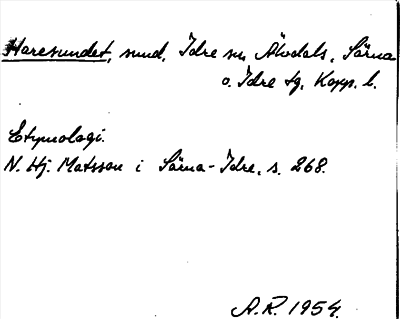 Haresundet, sund, Idre sn, Älvdals, Särna
o. Idre tg, Kopp. l.
Etymologi.
N. Hj. Matsson i Särna-Idre, s. 268.
A.R. 1954.